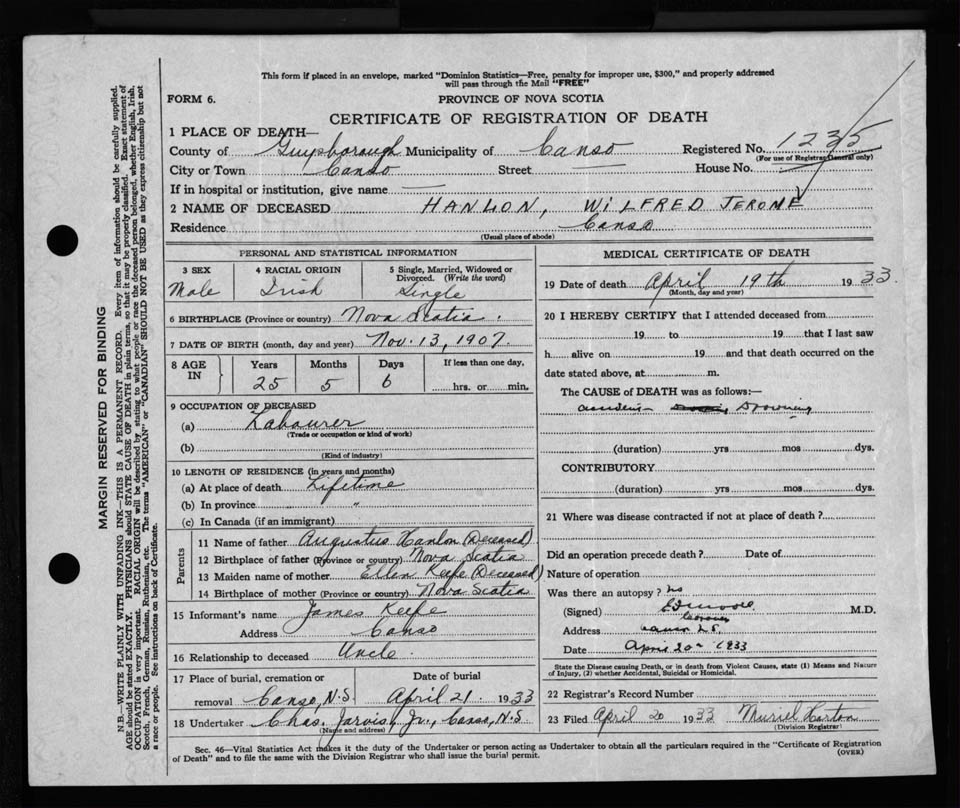 This form if placed in an envelope, marked "Dominion Statistics—Free, penalty for improper use, $300," and properly addressed
will pass through the Mail "FREE"
FORM 6.
PROVINCE OF NOVA SCOTIA
CERTIFICATE OF REGISTRATION OF DEATH
1 PLACE OF DEATH—
County of Guysborough Municipality of Canso Registered No. 1235
(For use of Registrar General only)
City or Town Canso Street — House No. —
If in hospital or institution, give name —
2 NAME OF DECEASED HANLON, WILFRED JEROME
Residence Canso
(Usual place of abode)
PERSONAL AND STATISTICAL INFORMATION
3 SEX
Male
4 RACIAL ORIGIN
Irish
5 Single, Married, Widowed or
Divorced. (Write the word)
Single
6 BIRTHPLACE (Province or country) Nova Scotia.
7 DATE OF BIRTH (month, day and year) Nov. 13, 1907.
8 AGE
IN
Years
25
Months
5
Days
6
If less than one day,
hrs. or min.
9 OCCUPATION OF DECEASED
(a) Labourer
(Trade or occupation or kind of work)
(b)
(Kind of industry)
10 LENGTH OF RESIDENCE (in years and months)
(a) At place of death Lifetime
(b) In province "
(c) In Canada (if an immigrant)
Parents
11 Name of father Augustus Hanlon (Deceased)
12 Birthplace of father (Province or country) Nova Scotia
13 Maiden name of mother Ellen Keefe (Deceased)
14 Birthplace of mother (Province or country) Nova Scotia
15 Informant's name James Keefe
Address Canso
16 Relationship to deceased Uncle.
17 Place of burial, cremation or
removal Canso, N.S.
Date of burial
April 21. 1933
18 Undertaker Chas. Jarvis Jr., Canso, N.S.
(Name and address)
MEDICAL CERTIFICATE OF DEATH
19 Date of death April 19th 1933.
(Month, day and year)
20 I HEREBY CERTIFY that I attended deceased from
19 to 19 that I last saw
h alive on 19 and that death occurred on the
date stated above, at m.
The CAUSE of DEATH was as follows:—
Drowning
(duration) yrs mos dys.
CONTRIBUTORY
(duration) yrs mos dys.
21 Where was disease contracted if not at place of death?
Did an operation precede death? Date of
Nature of operation
Was there an autopsy? no
(Signed) M.D.
Coroner
Address Canso N.S.
Date April 20th 1933
State the Disease causing Death, or in death from Violent Causes, state (1) Means and Nature
of Injury, (2) whether Accidental, Suicidal or Homicidal.
22 Registrar's Record Number
23 Filed April 20 1933 Muriel
(Division Registrar)
Sec. 46—Vital Statistics Act makes it the duty of the Undertaker or person acting as Undertaker to obtain all the particulars required in the "Certificate of Registration
of Death" and to file the same with the Division Registrar who shall issue the burial permit.
(OVER)
MARGIN RESERVED FOR BINDING
N.B.—WRITE PLAINLY WITH UNFADING INK—THIS IS A PERMANENT RECORD. Every item of information should be carefully supplied.
AGE should be stated EXACTLY. PHYSICIANS should STATE CAUSE OF DEATH in plain terms, so that it may be properly classified. Exact statement of
OCCUPATION is very important. RACIAL ORIGIN will be described by stating to what people or race the deceased person belonged, whether English, Irish,
Scotch, French, German, Russian, Ruthenian, etc. The terms "AMERICAN" or "CANADIAN" SHOULD NOT BE USED as they express citizenship but not
a race or people. See instructions on back of Certificate.